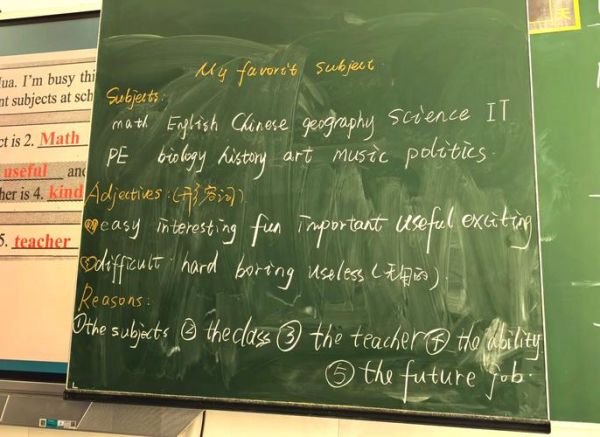 Jua. I'm busy thi
nt subjects at sch
ct is 2. Math
useful and
her is 4. kind
5. teacher
My favorit subject.
Subjects:
math English Chinese geography science IT
PE biology history art music politics.
Adjectives: (形容词)
easy interesting fun important useful exciting
difficult hard boring useless (无用的).
Reasons:
①the subjects ② the class ③ the teacher ④ the ability
⑤ the future job.